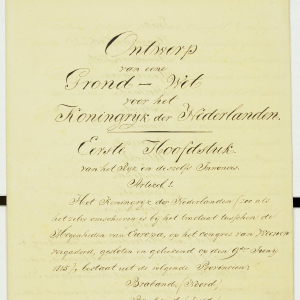 Ontwerp
van eene
Grond-Wet
voor het
Koningryk der Nederlanden.
Eerste Hoofdstuk.
van het Ryk en deszelfs Inwoners.
Artikel 1.
Het Koningryk der Nederlanden, (zoo als
het zelve omschreven is by het tractaat tusschen de
Mogenheden van Europa, op het congres van Weenen
vergaderd, gesloten en geteekend op den 9den Juny
1815), bestaat uit de volgende Provincien:
Braband (Noord)